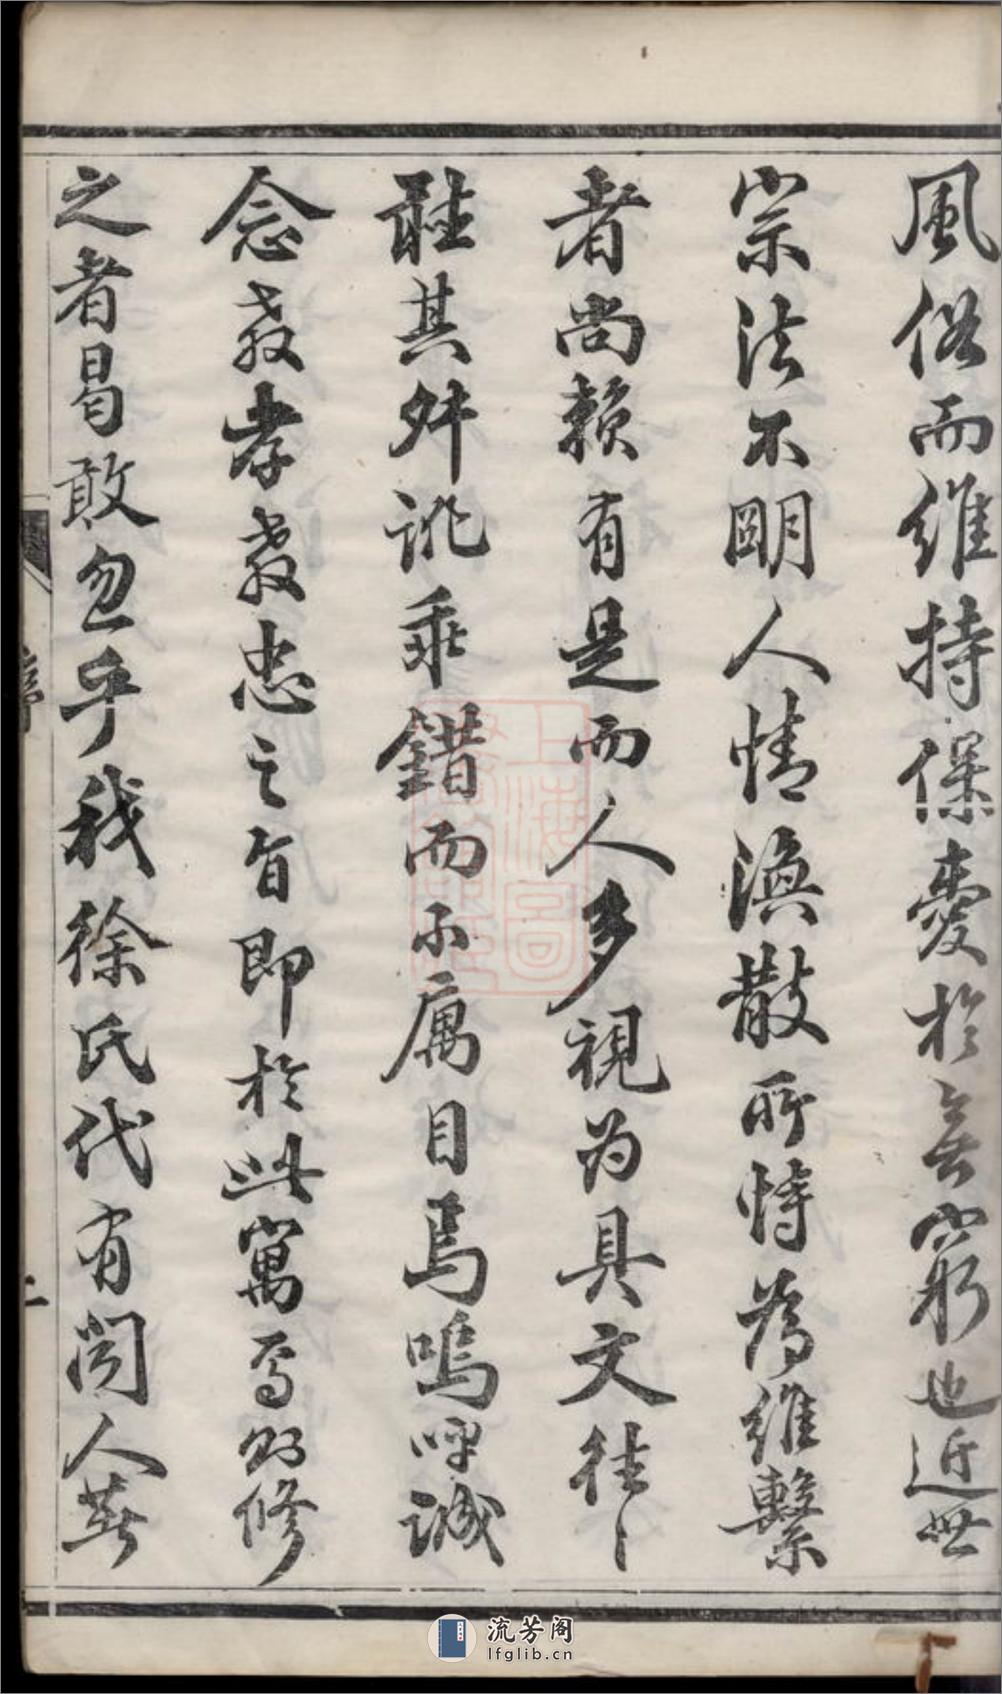 風俗而維持保愛於無窮也近世
宗法不明人情渙散所恃為維繫
者尚賴有是而人多視为具文往〻
聽其舛訛乖錯而不属目焉嗚呼誠
念教孝教忠之旨即於此寓焉则修
之者曷敢忽乎我徐氏代有聞人
序
二
上海圖
流芳阁
lfglib.cn